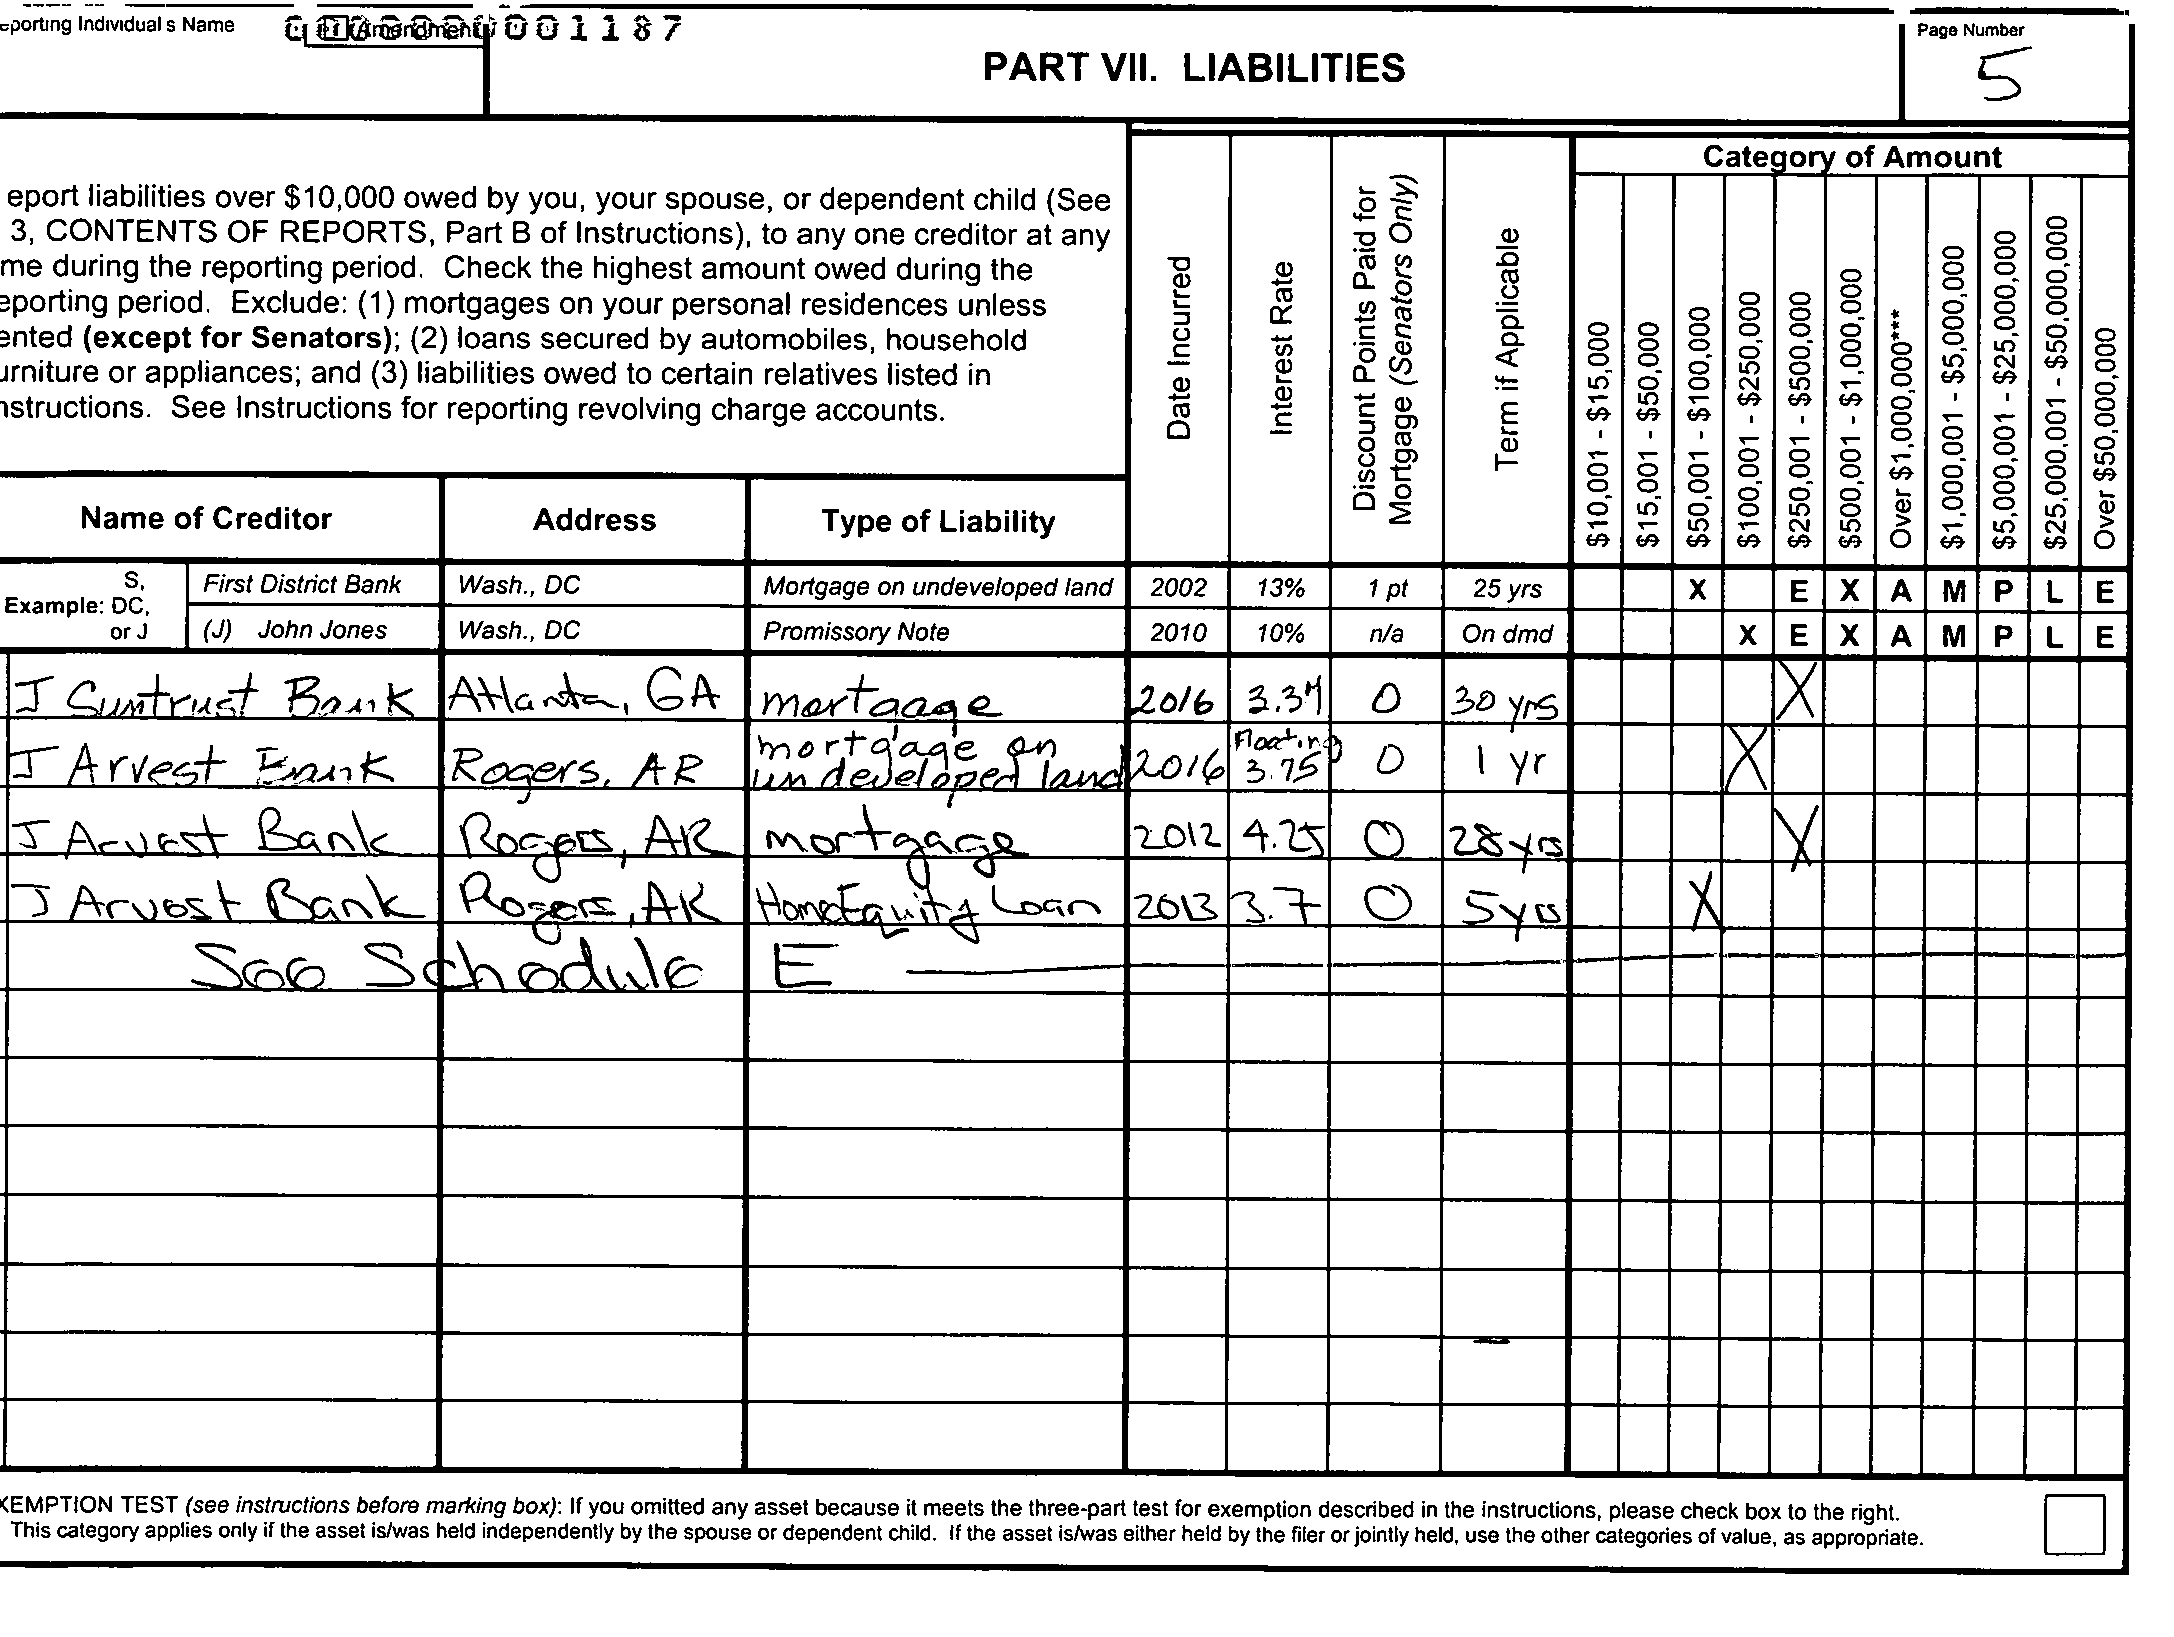 eporting Individual s Name
Amendment
001187
PART VII. LIABILITIES
Page Number
5
eport liabilities over $10,000 owed by you, your spouse, or dependent child (See
3, CONTENTS OF REPORTS, Part B of Instructions), to any one creditor at any
me during the reporting period. Check the highest amount owed during the
eporting period. Exclude: (1) mortgages on your personal residences unless
ented (except for Senators); (2) loans secured by automobiles, household
urniture or appliances; and (3) liabilities owed to certain relatives listed in
nstructions. See Instructions for reporting revolving charge accounts.
Date Incurred
Interest Rate
Discount Points Paid for
Mortgage (Senators Only)
Term if Applicable
Category of Amount
$10,001 - $15,000
$15,001 - $50,000
$50,001 - $100,000
$100,001 - $250,000
$250,001 - $500,000
$500,001 - $1,000,000
Over $1,000,000***
$1,000,001 - $5,000,000
$5,000,001 - $25,000,000
$25,000,001 - $50,000,000
Over $50,000,000
Name of Creditor Address Type of Liability
Example: S, DC, or J
First District Bank Wash., DC Mortgage on undeveloped land 2002 13% 1 pt 25 yrs X E X A M P L E
(J) John Jones Wash., DC Promissory Note 2010 10% n/a On dmd X E X A M P L E
J Suntrust Bank Atlanta, GA mortgage 2016 0 30 yrs X
J Arvest Bank Rogers, AR mortgage on undeveloped land 2016 Floating 3.75 0 1 yr X
J Arvest Bank Rogers, AR mortgage 2012 4.25 0 28 yrs X
J Arvest Bank Rogers, AR Home Equity Loan 2013 3.7 0 5 yrs X
See Schedule E
XEMPTION TEST (see instructions before marking box): If you omitted any asset because it meets the three-part test for exemption described in the instructions, please check box to the right.
This category applies only if the asset is/was held independently by the spouse or dependent child. If the asset is/was either held by the filer or jointly held, use the other categories of value, as appropriate.